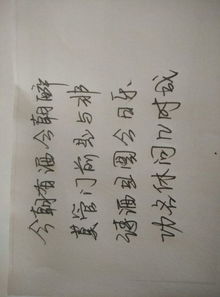 今朝有酒今朝醉
莫管门前是与非
诗酒且图今日乐
功名休问几时成